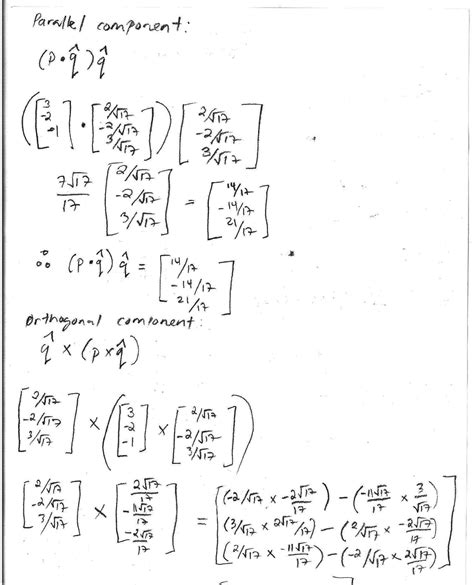 Parallel component:
(p • q̂) q̂
([3 -2 -1] • [2/√17 -2/√17 3/√17]) [2/√17 -2/√17 3/√17]
7√17/17 [2/√17 -2/√17 3/√17] = [14/17 -14/17 21/17]
∴ (p • q̂) q̂ = [14/17 -14/17 21/17]
Orthogonal component:
q̂ × (p × q̂)
[2/√17 -2/√17 3/√17] × ([3 -2 -1] × [2/√17 -2/√17 3/√17])
[2/√17 -2/√17 3/√17] × [2√17/17 -11√17/17 -2√17/17] = [(-2/√17 × -2√17/17) - (-11√17/17 × 3/√17) (3/√17 × 2√17/17) - (2/√17 × -2√17/17) (2/√17 × -11√17/17) - (-2/√17 × 2√17/17)]